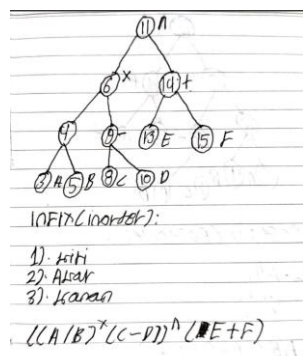 11 ^
6 x 14 +
4 9 - 13 E 15 F
3 A 5 B 8 C 10 D
INFIX (inorder):
1). kiri
2). Akar
3). kanan
((A/B)^x(C-D))^(E+F)